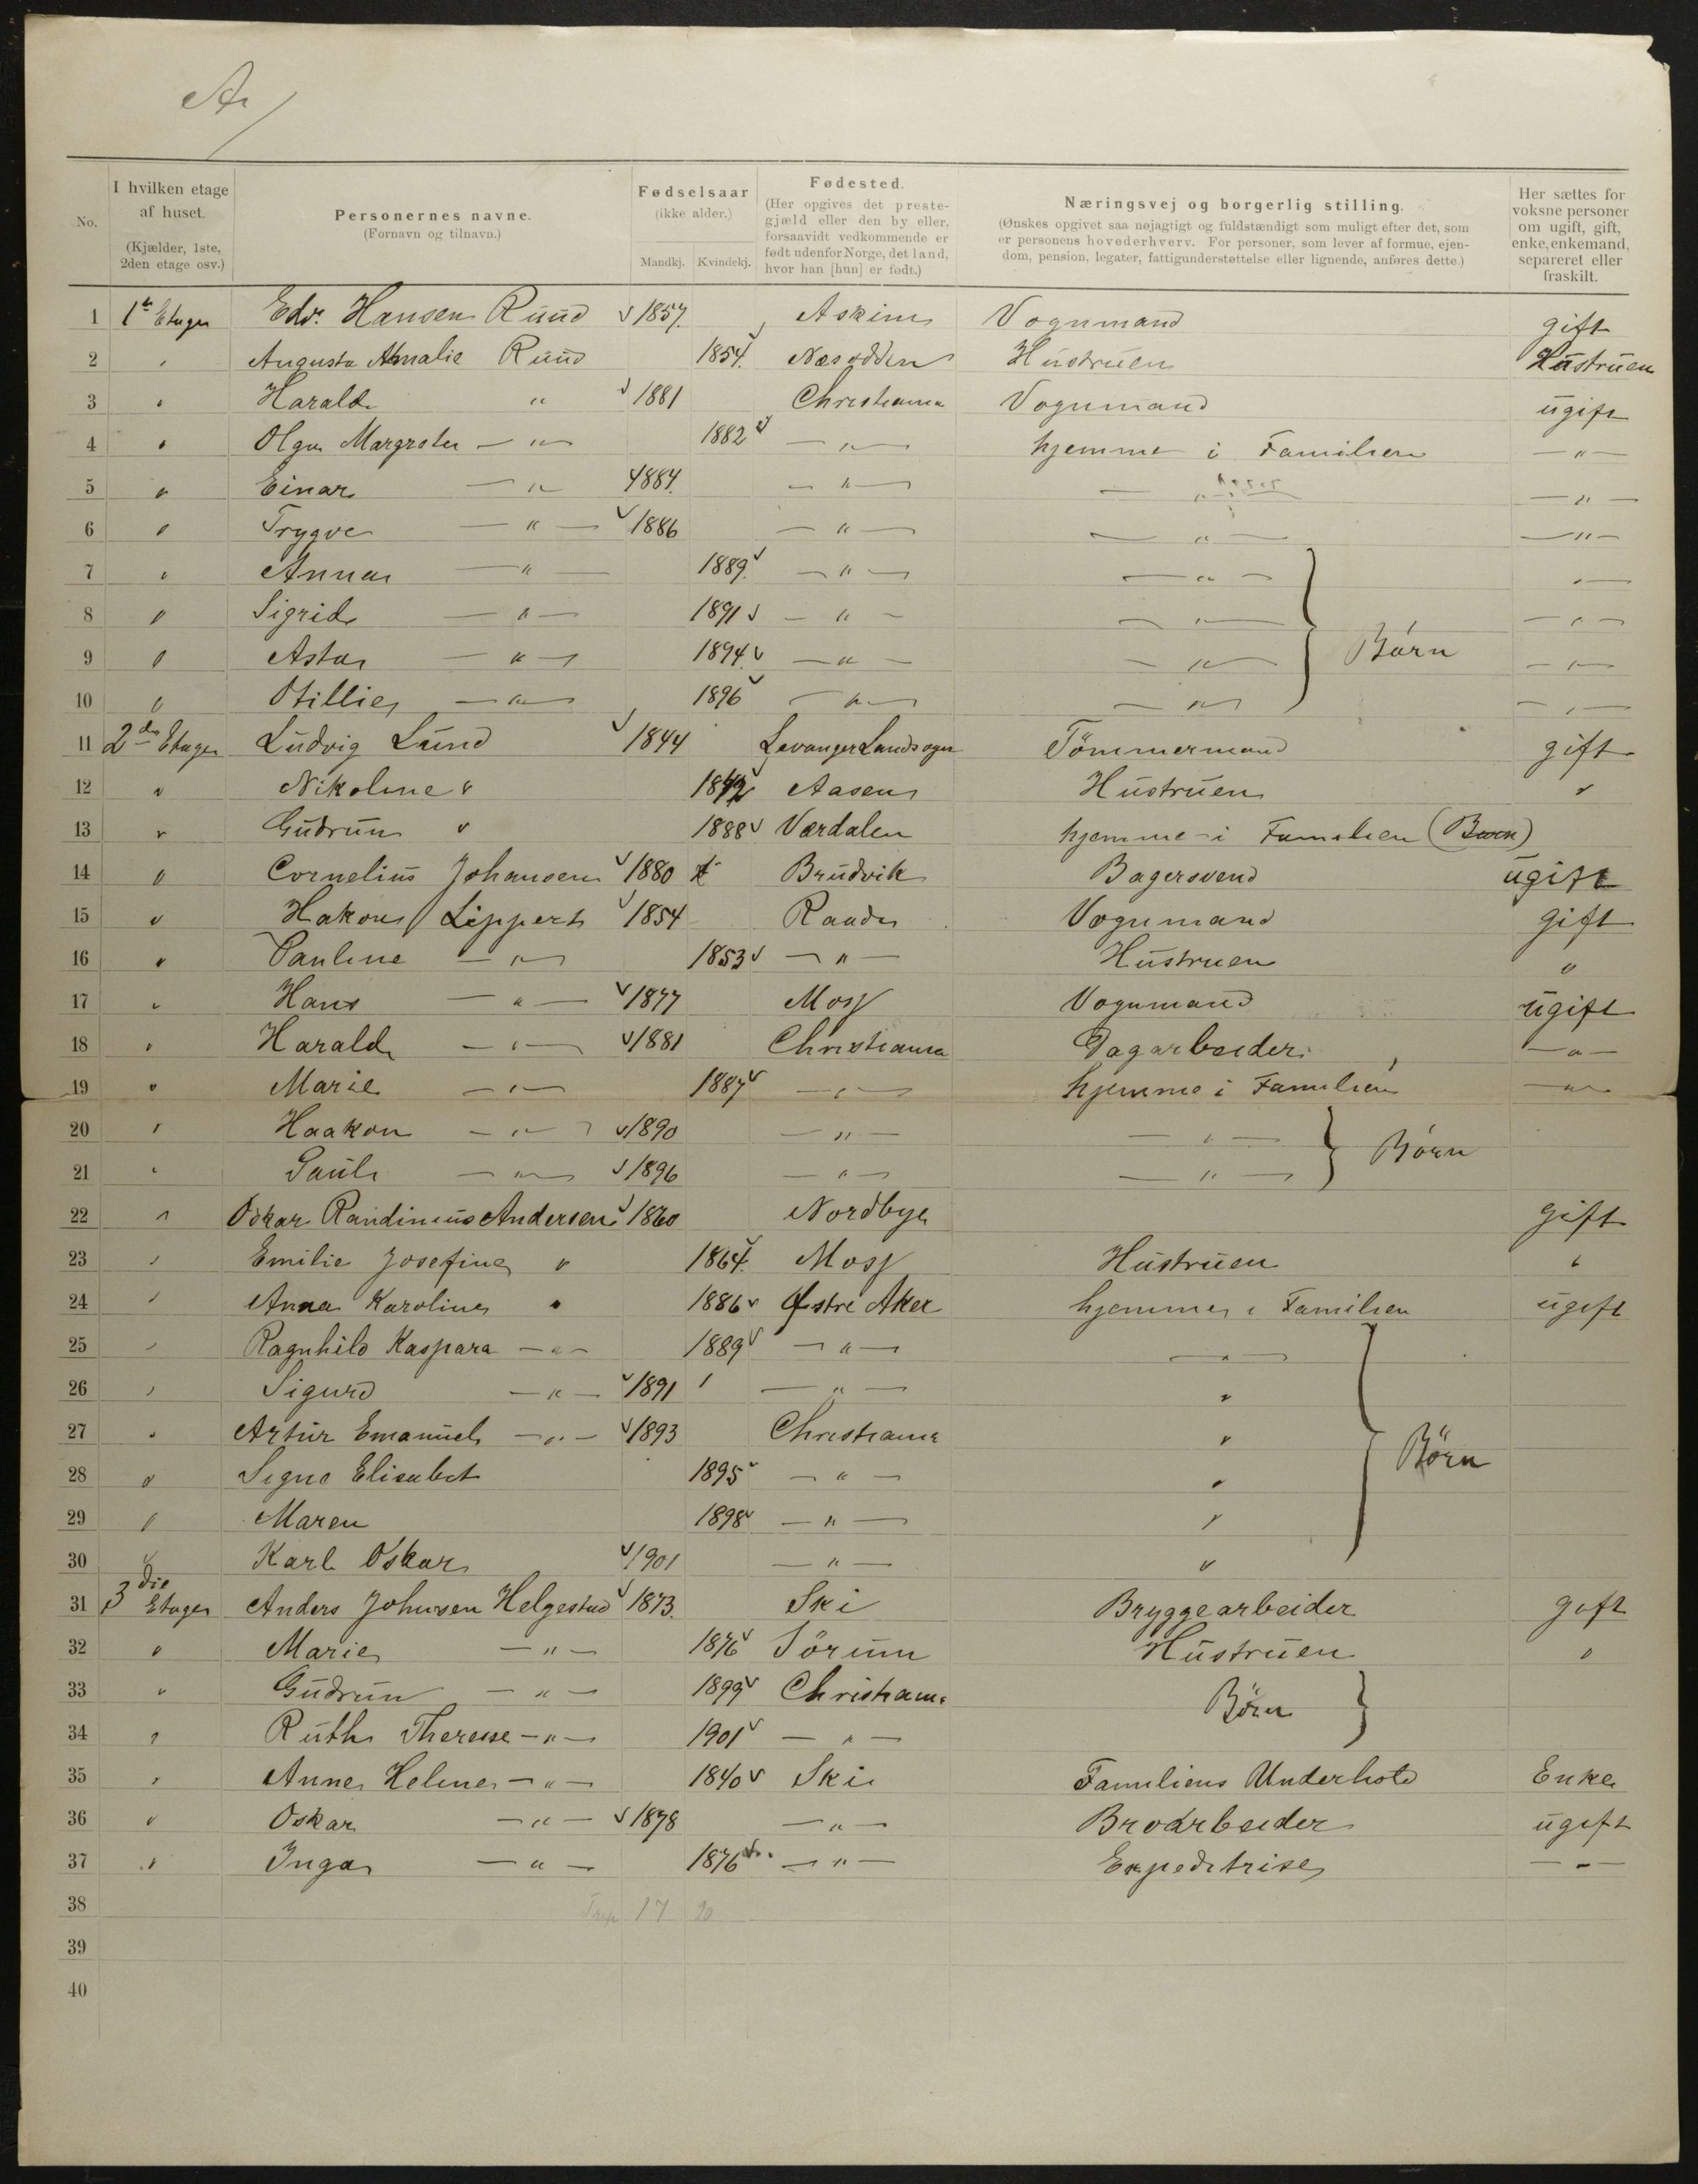 A.
No.
I hvilken etage af huset. (Kjælder, 1ste, 2den etage osv.)
Personernes navne. (Fornavn og tilnavn.)
Fødselsaar (ikke alder.) Mandkj. Kvindekj.
Fødested. (Her opgives det prestegjæld eller den by eller, forsaavidt vedkommende er født udenfor Norge, det land, hvor han [hun] er født.)
Næringsvej og borgerlig stilling. (Ønskes opgivet saa nøjagtigt og fuldstændigt som muligt efter det, som er personens hovederhverv. For personer, som lever af formue, ejendom, pension, legater, fattigunderstøttelse eller lignende, anføres dette.)
Her sættes for voksne personer om ugift, gift, enke, enkemand, separeret eller fraskilt.
1 1ste Etage Edv. Hansen Ruud 1857. Askim Vognmand gift
2 " Augusta Amalie Ruud 1854. Næsodden Hustruen Hustruen
3 " Harald " 1881 Christiania Vognmand ugift
4 " Olga Margrete — " 1882 — " — hjemme i Familien — " —
5 " Einar — " 1884. — " — — " — — " —
6 " Trygve — " — 1886 — " — — " — — " —
7 " Anna — " — 1889. — " — — " — " —
8 " Sigrid — " — 1891 — " — — " — — " —
9 " Asta — " — 1894. — " — — " — Børn — " —
10 " Otillie — " — 1896 — " — — " — — " —
11 2den Etage Ludvig Lund 1844 Levanger Landsogn Tömmermand gift
12 " Nikoline " 1842 Aasen Hustruen "
13 " Gudrun " 1888 Værdalen hjemme i Familien (Barn)
14 " Cornelius Johansen 1880 Brudvik Bagersvend ugift
15 " Hakon Lippert 1854 Raade Vognmand gift
16 " Pauline — " — 1853 — " — Hustruen "
17 " Hans — " — 1877 Moss Vognmand ugift
18 " Harald — " — 1881 Christiania Dagarbeider — " —
19 " Marie — " — 1887 — " — hjemme i Familien — " —
20 " Haakon — " — 1890 — " — — " — Børn
21 " Paul — " — 1896 — " — — " —
22 " Oskar Randinius Andersen 1860 Nordbye gift
23 " Emilie Josefine " 1864. Moss Hustruen "
24 " Anna Karoline " 1886 Østre Aker hjemme i Familien ugift
25 " Ragnhild Kaspara — " — 1889 — " — — " —
26 " Sigurd — " — 1891 — " — "
27 " Artur Emanuel — " — 1893 Christiania " Børn
28 " Signe Elisabet 1895 — " — "
29 " Maren 1898 — " — "
30 " Karl Oskar 1901 — " — "
31 3die Etage Anders Johnsen Helgestad 1873. Ski Bryggearbeider gift
32 " Marie — " — 1876 Sörum Hustruen "
33 " Gudrun — " — 1899 Christiania Børn
34 " Ruth Therese — " — 1901 — " —
35 " Anne Helene — " — 1840 Ski Familiens Underhold Enke
36 " Oskar — " — 1878 — " — Brodrbeider ugift
37 " Inga — " — 1876 — " — Expeditrise — " —
38 17 20
39
40